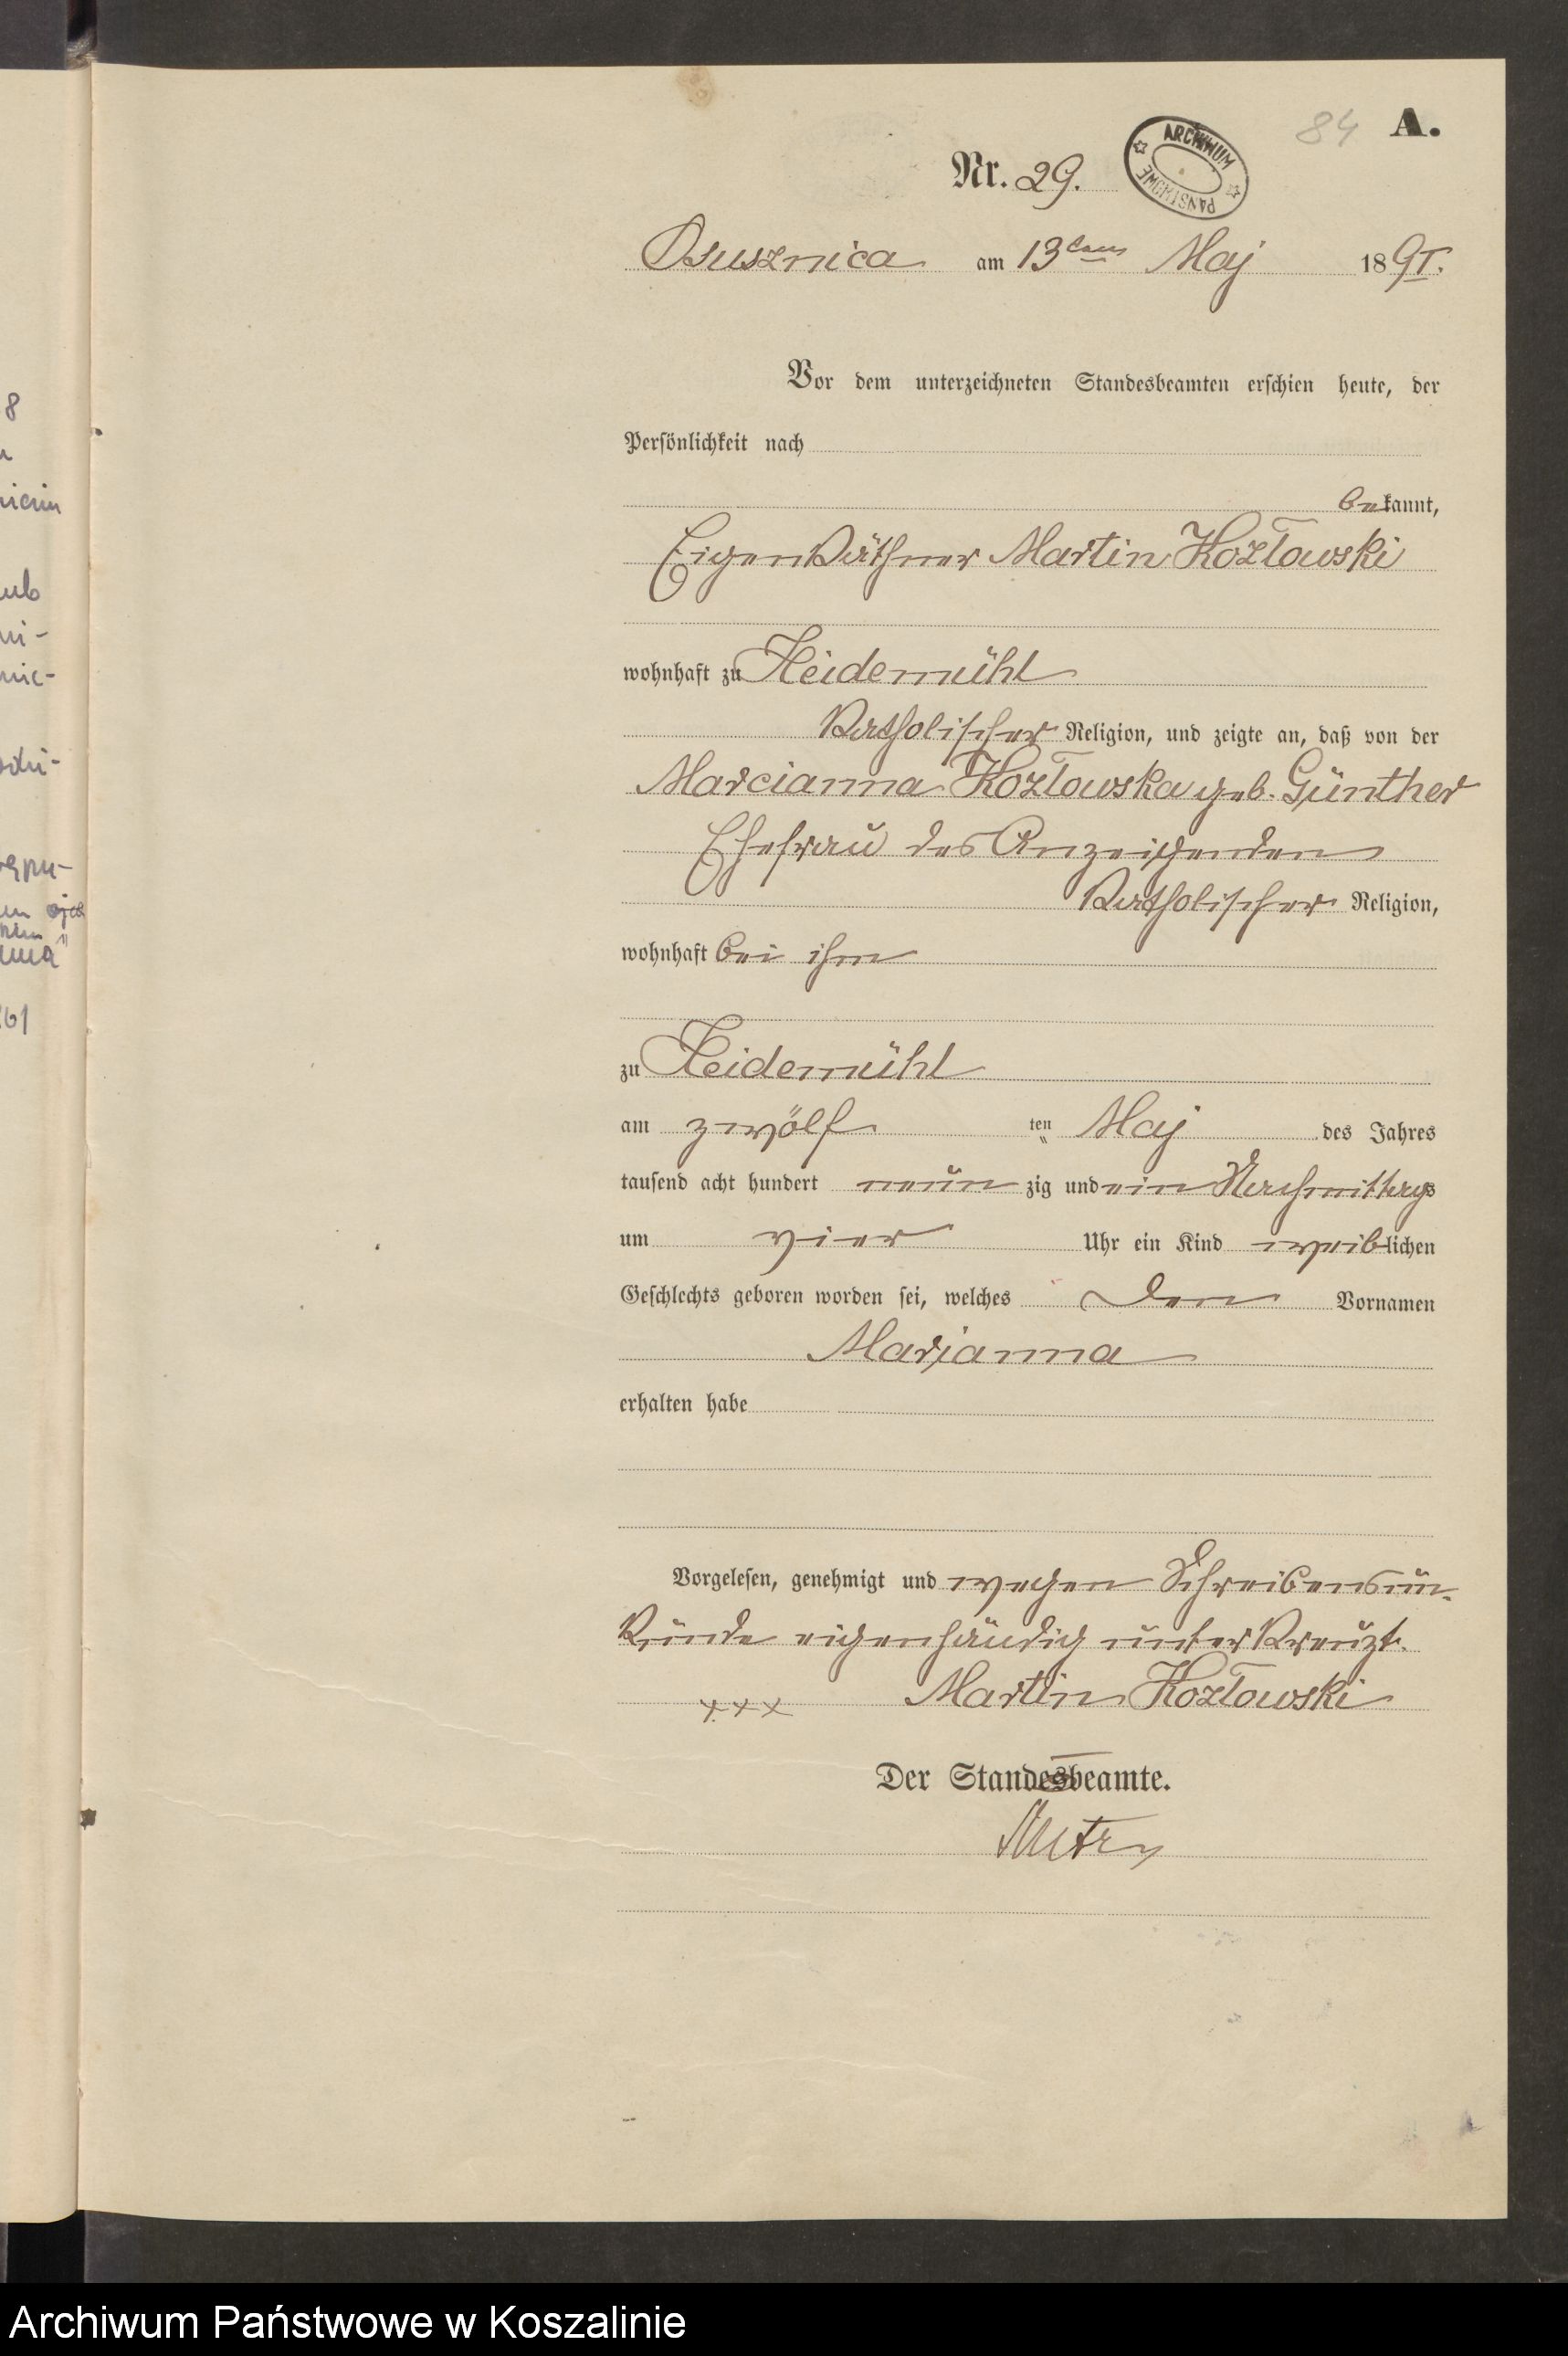 84 A.
Nr. 29.
ARCHIWUM
PAŃSTWOWE
Osusznica am 13ten Maj 1891.
Vor dem unterzeichneten Standesbeamten erschien heute, der
Persönlichkeit nach
bekannt,
Eigenkäthner Martin Kozłowski
wohnhaft zu Heidemühl
katholischer Religion, und zeigte an, daß von der
Marcianna Kozłowska geb. Günther
Ehefrau des Anzeigenden
katholischer Religion,
wohnhaft bei ihm
zu Heidemühl
am zwölf ten Maj des Jahres
tausend acht hundert neun zig und ein Nachmittags
um vier Uhr ein Kind weiblichen
Geschlechts geboren worden sei, welches den Vornamen
Marjanna
erhalten habe
Vorgelesen, genehmigt und wegen Schreibensun-
kunde eigenhändig unterkreuzt.
+++ Martin Kozłowski
Der Standesbeamte.
Archiwum Państwowe w Koszalinie